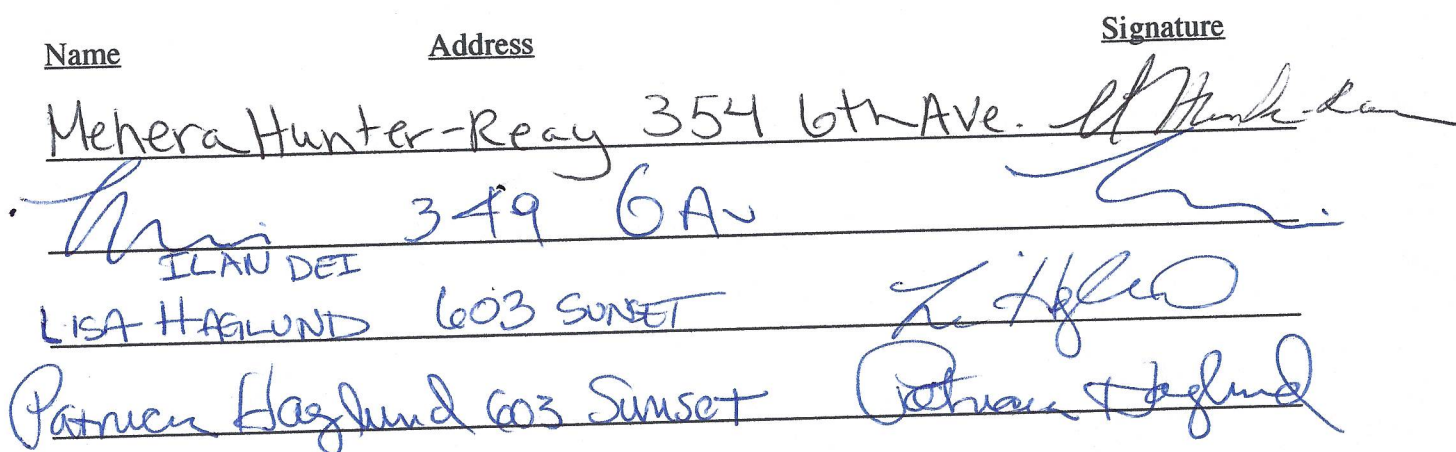 Name Address Signature
Mehera Hunter-Reay 354 6th Ave.
349 6 Av
ILAN DEI
LISA HAGLUND 603 SUNSET
Patricia Haglund 603 Sunset Patricia Haglund